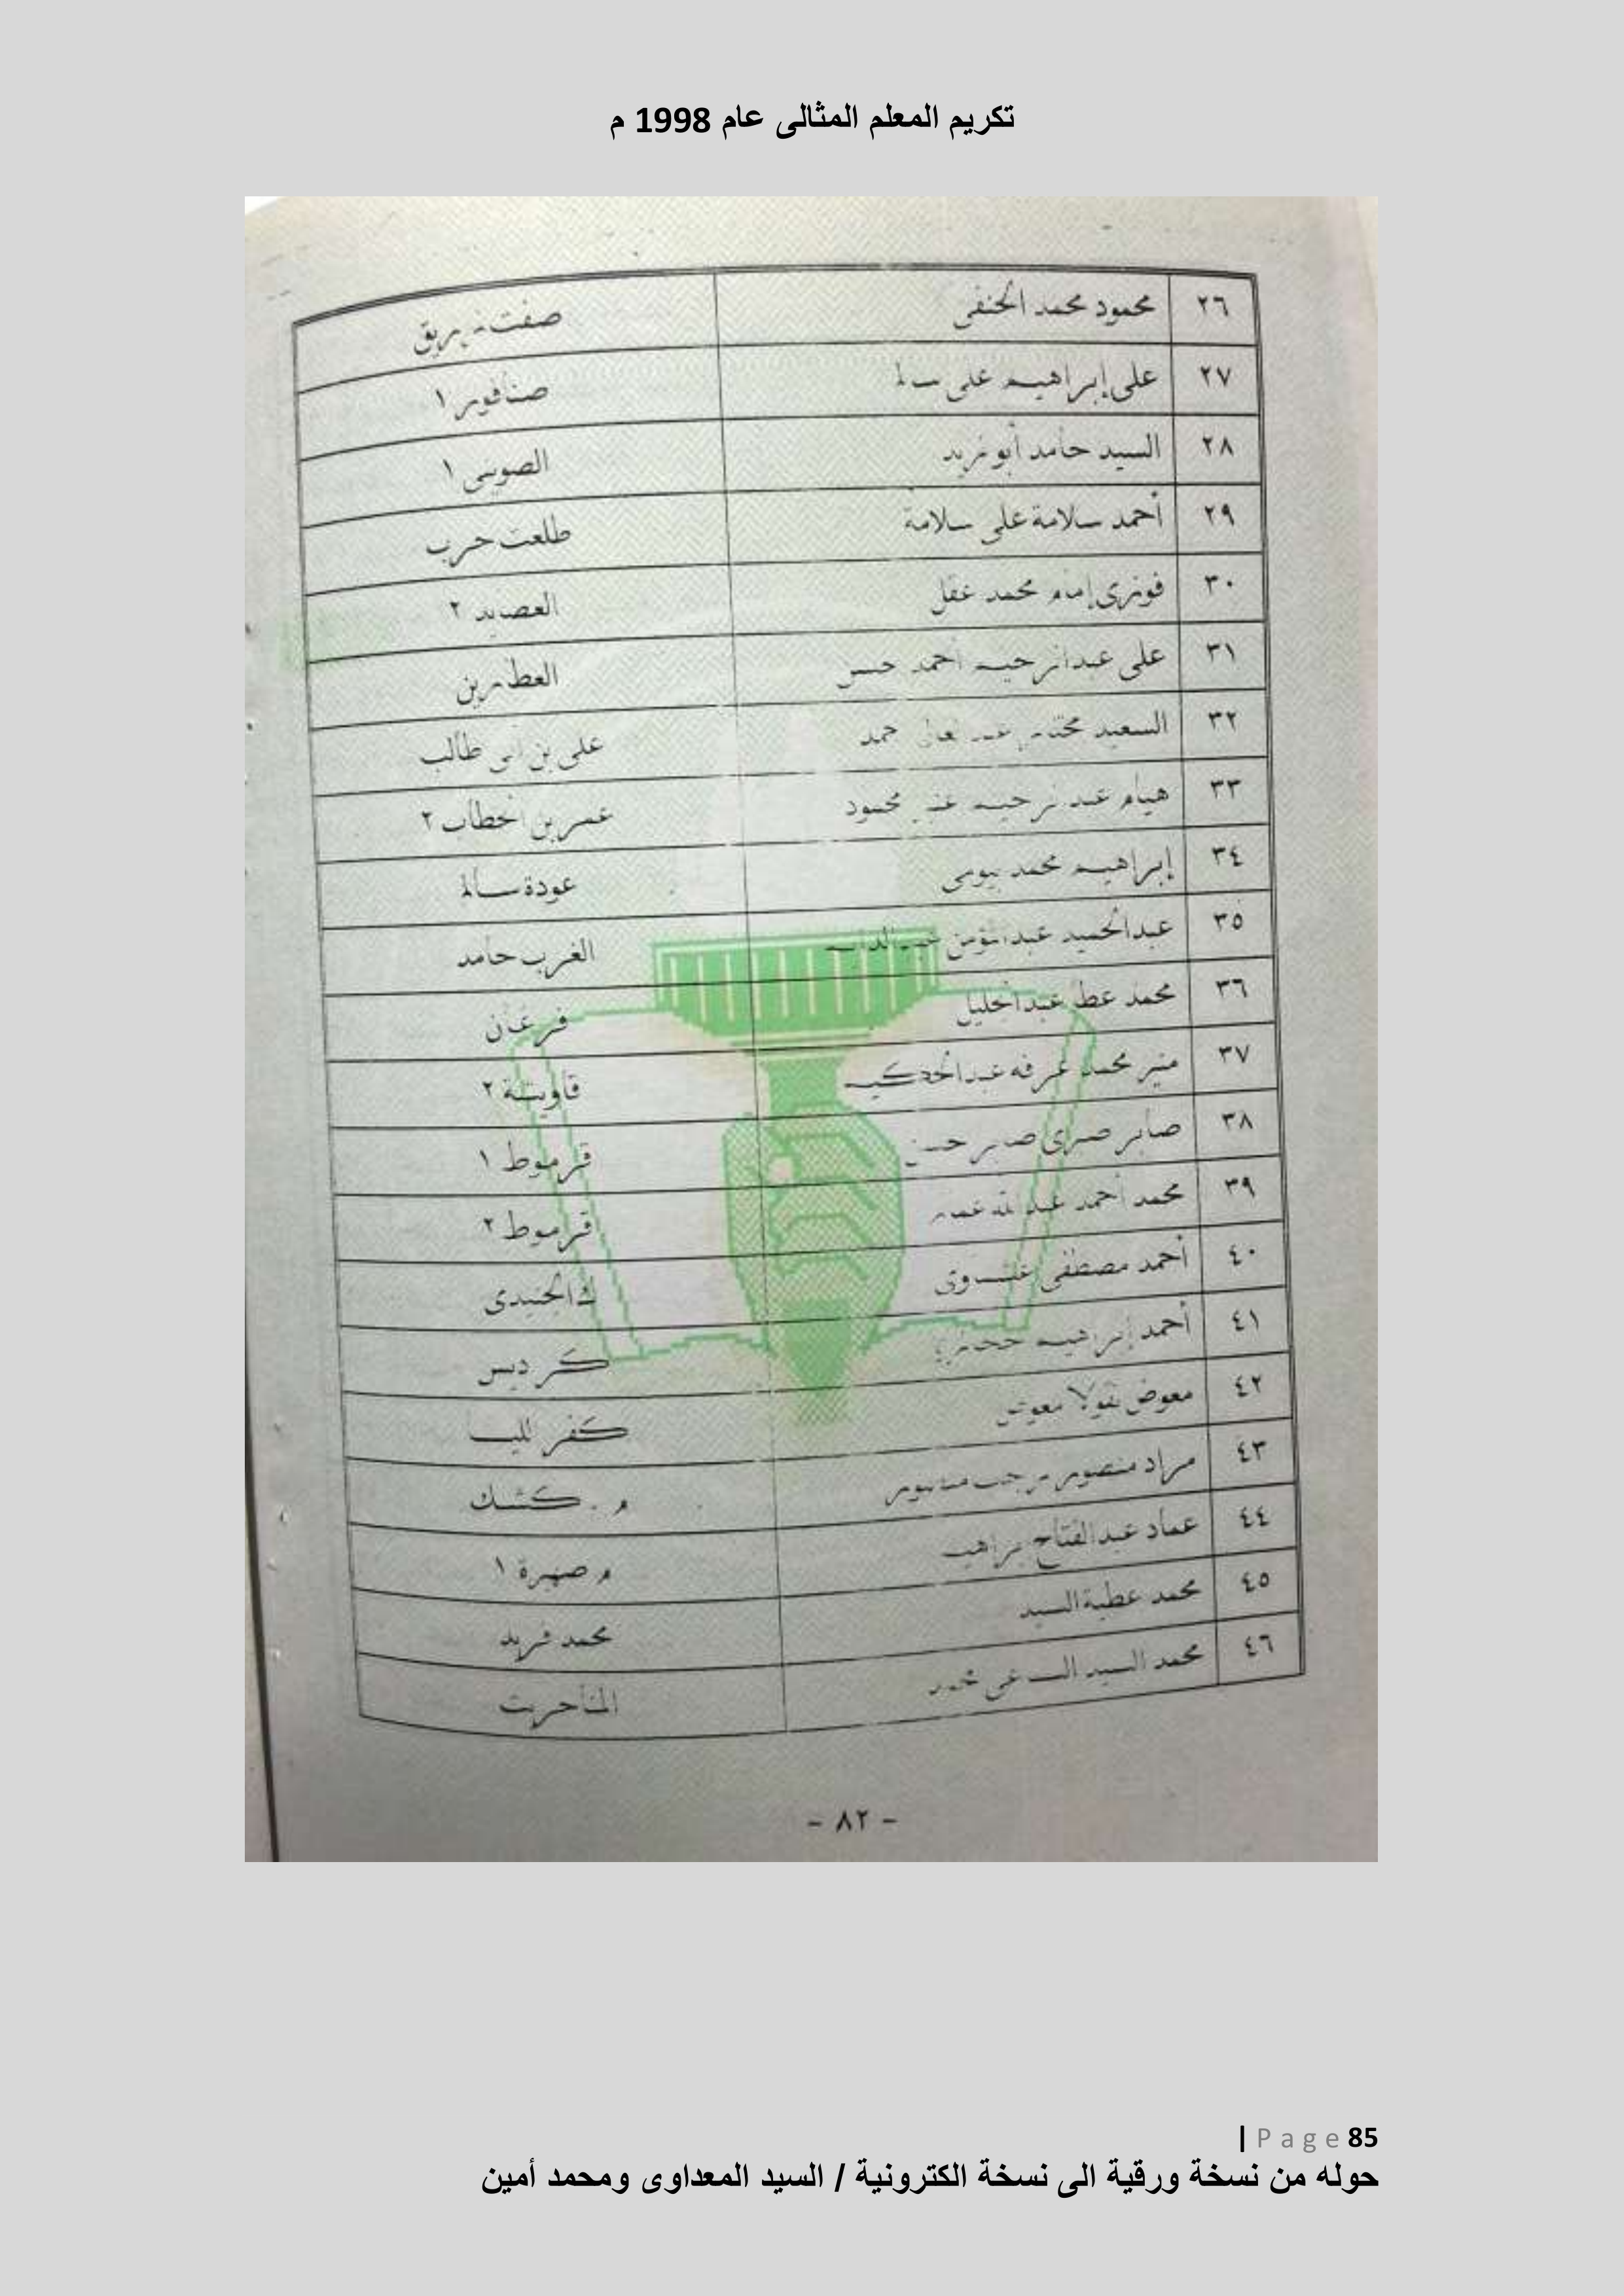 تكريم المعلم المثالى عام 1998 م
٢٦ محمود محمد الحنفى صفت زريق
٢٧ على إبراهيم على سالم صنافور ١
٢٨ السيد حامد أبو زيد الصوينى ١
٢٩ أحمد سلامة على سلامة طلعت حرب
٣٠ فوزى إمام محمد عقل العصايد ٢
٣١ على عبد الرحيم أحمد حسن العطارين
٣٢ السعيد مختار على بن أبى طالب
٣٣ هيام عبد الرحيم محمود عمر بن الخطاب ٢
٣٤ إبراهيم محمد بيومى عودة سالم
٣٥ عبد الحميد عبد المؤمن عبد الدايم الغرب حامد
٣٦ محمد عطا عبد الجليل فرغان
٣٧ منير محمد عرفه عبد الحكيم قاويشة ٢
٣٨ صابر صبرى صابر حسن قرموط ١
٣٩ محمد أحمد عبد الله قرموط ٢
٤٠ أحمد مصطفى ك الجنيدى
٤١ أحمد إبراهيم كرديس
٤٢ معوض نقولا معوض كفر
٤٣ مراد منصور رجب منصور م . كشك
٤٤ عماد عبد الفتاح إبراهيم م صهبرة ١
٤٥ محمد عطية السيد محمد فريد
٤٦ محمد السيد محمد المناحريت
- ٨٢ -
| Page 85
حوله من نسخة ورقية الى نسخة الكترونية / السيد المعداوى ومحمد أمين